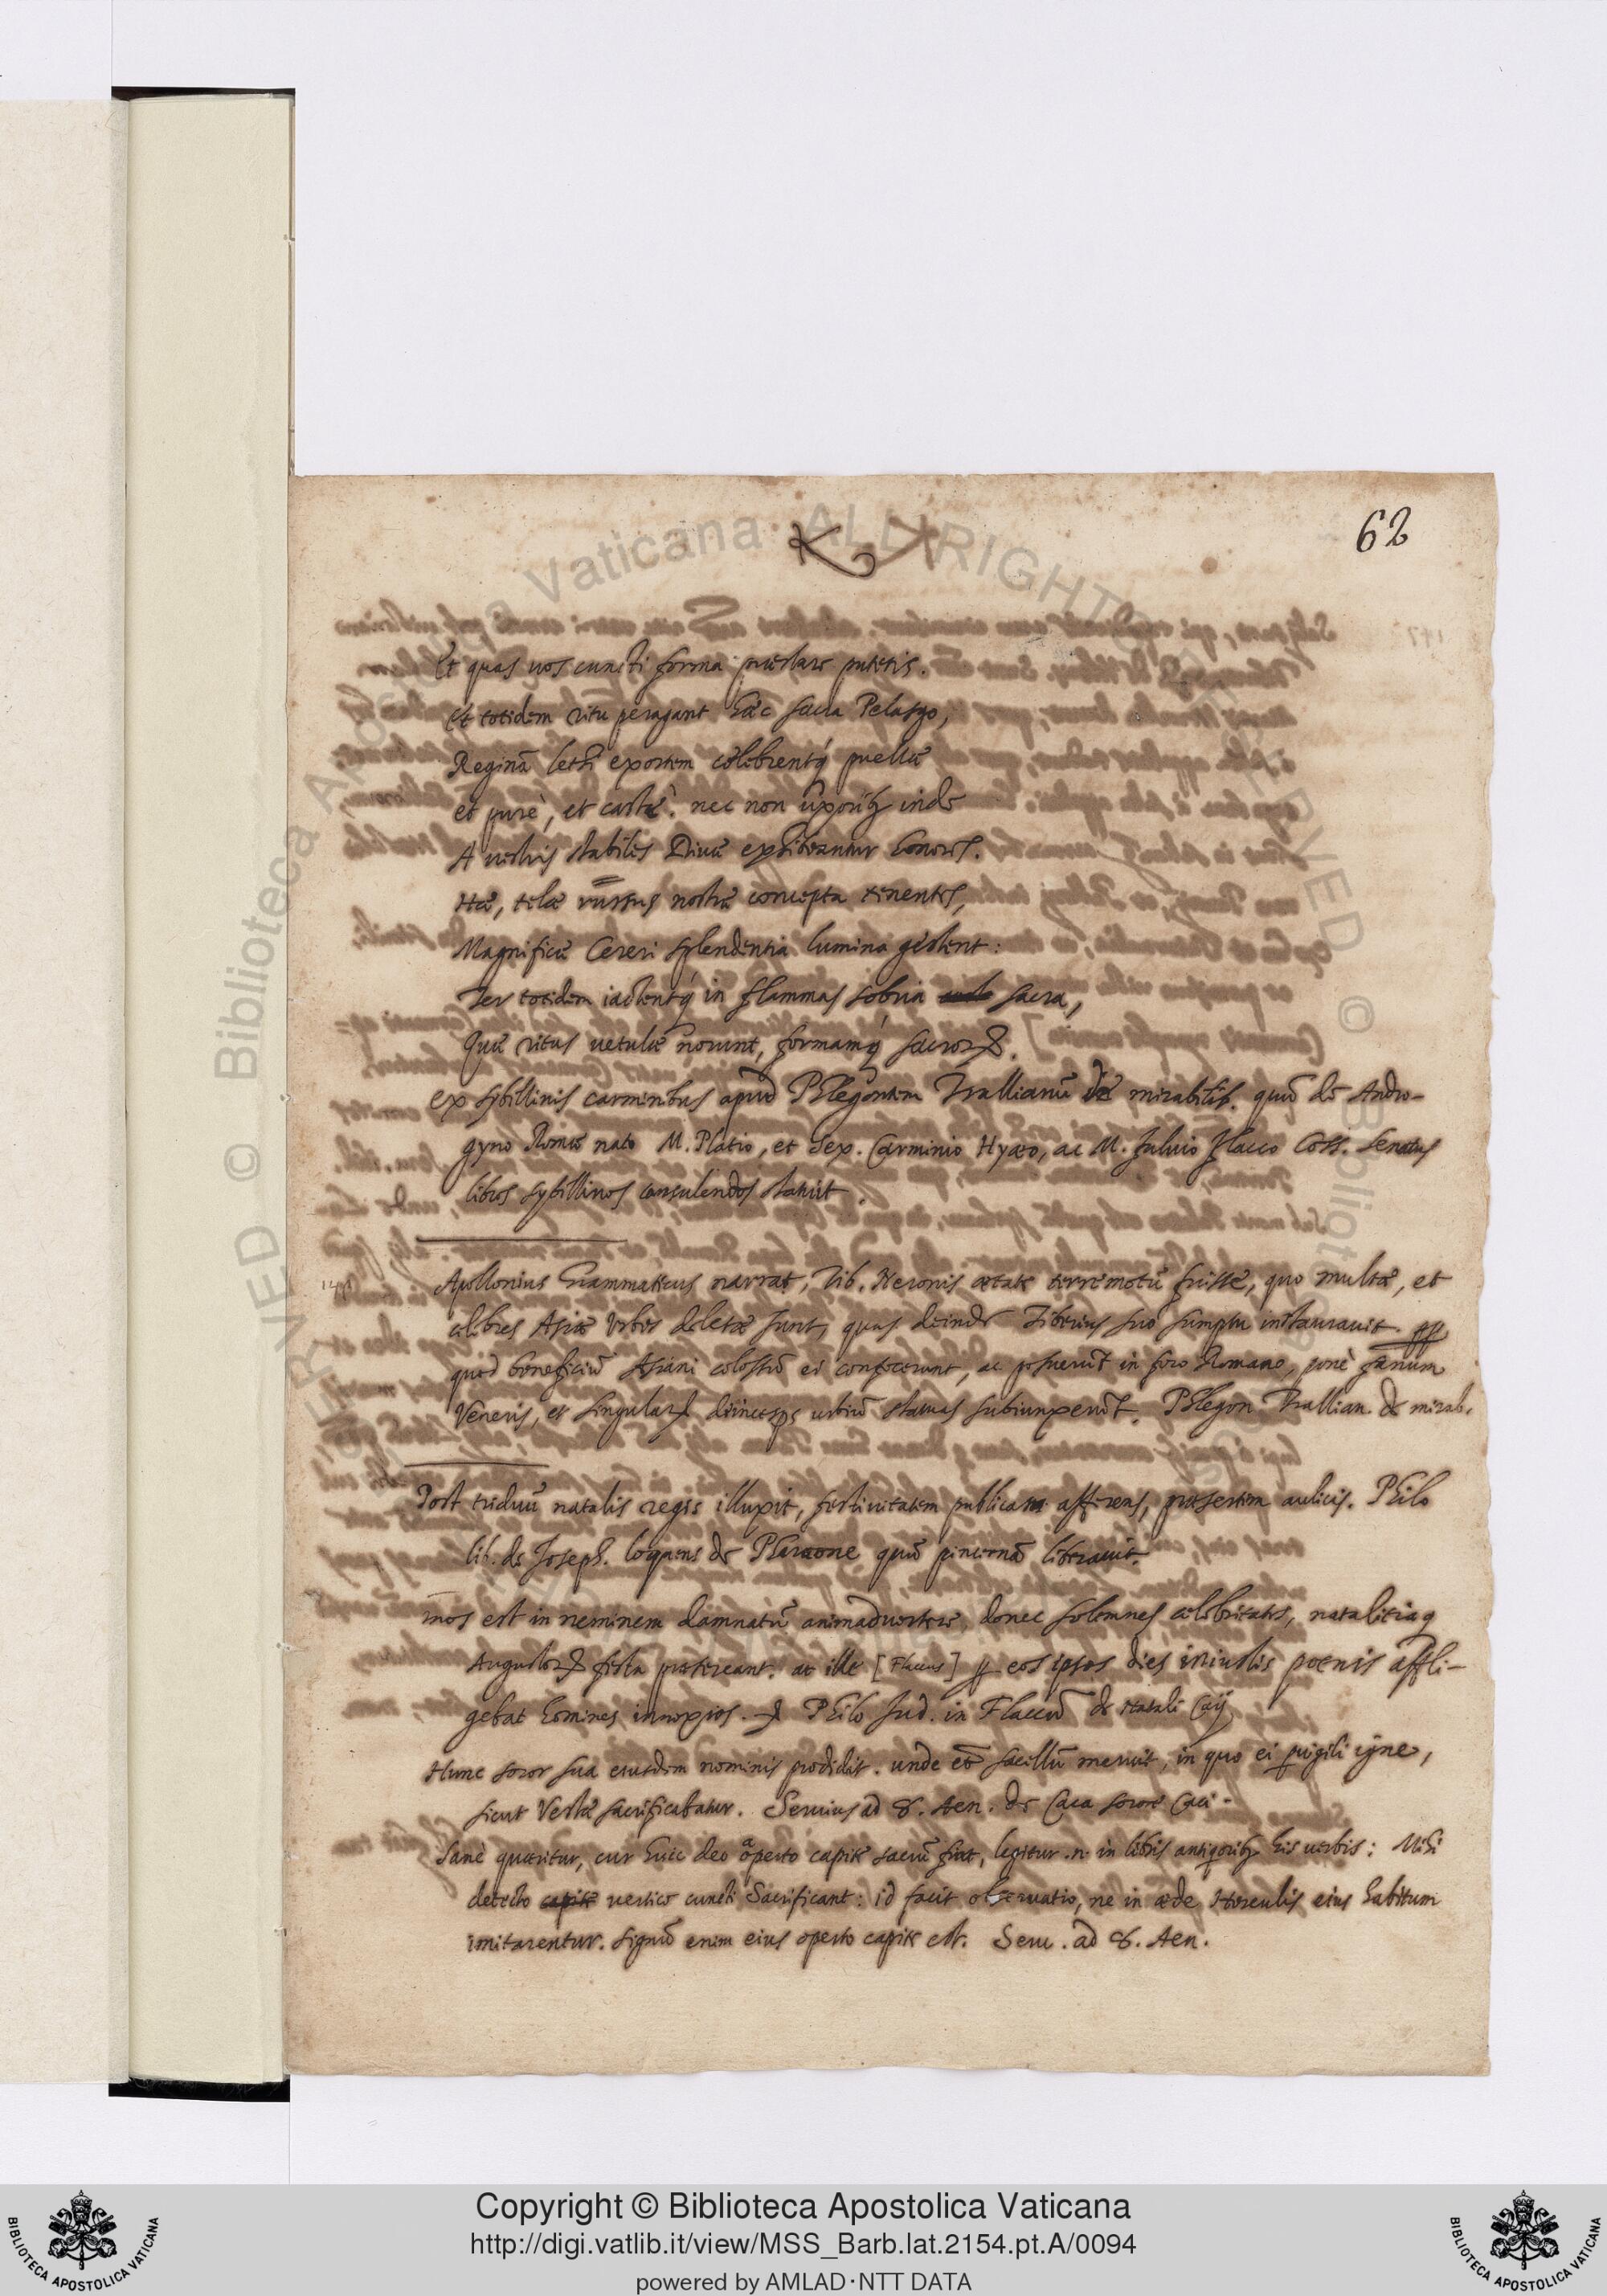 62
Et quas uos cuncti forma præstare putetis.
Et totidem ritu peragant hæc sacra Pelasgo,
Reginā lethi exortem celebrentq́ puellæ
et purè, et castè. nec non uxoribꝫ inde
A uestris stabiles Diuæ exhibeantur honores.
Hæ, telæ rursus nostræ concepta tenentes,
Magnificæ Cereri splendentia lumina gestent:
Ter totidem iactentq́ in flammas sobria sacra,
Quæ ritus uetulæ norunt, formamq́ sacroꝝ.
ex sybillinis carminibus apud Phlegontem Trallianū de mirabilib. quū de Andro-
gyno Romæ nato M. Platio, et Sex. Carminio Hyæo, ac M. Fuluio Flacco Coss. Senatus
libros sybillinos consulendos statuit.
Apollonius Grammaticus narrat, Tib. Neronis ætate terremotū fuisse, quo multæ, et
celebres Asiæ Vrbes deletæ sunt, quas deinde Tiberius suo sumptu instaurauit.
quod beneficiū Asiani colossū ei confecerunt, ac posuerūt in foro Romano, ponè fanum
Veneris, et singulaꝝ deinceps urbiū statuas subiunxerūt. Phlegon Trallian. de mirab.
Post triduū natalis regis illuxit, festiuitatem publicam afferens, præsertim aulicis. Philo
lib. de Joseph. loquens de Pharaone quū pincernā liberauit.
mos est in neminem damnatū animaduertere, donec solemnes celebritates, natalitiaq
Augustoꝝ festa prætereant. at ille [Flaccus] ꝑ eos ipsos dies iniustis poenis affli-
gebat homines innoxios. Philo Jud. in Flaccū de Natali Caij
Hunc soror sua eiusdem nominis prodidit. unde et̄ sacellū meruit, in quo ei ꝑuigili igne,
sicut Vestæ sacrificabatur. Seruius ad 8. Aen. de Caca sorore Caci.
Sanè quæritur, cur huic deo aperto capite sacrū fiat, legitur .n. in libris antiqoribꝫ his uerbis: Mihi
detecto capite uertice cuncti Sacrificant: id facit obseruatio, ne in æde Herculis eius habitum
imitarentur. signū enim eius operto capite est. Seru. ad 8. Aen.
Copyright © Biblioteca Apostolica Vaticana
http://digi.vatlib.it/view/MSS_Barb.lat.2154.pt.A/0094
powered by AMLAD·NTT DATA